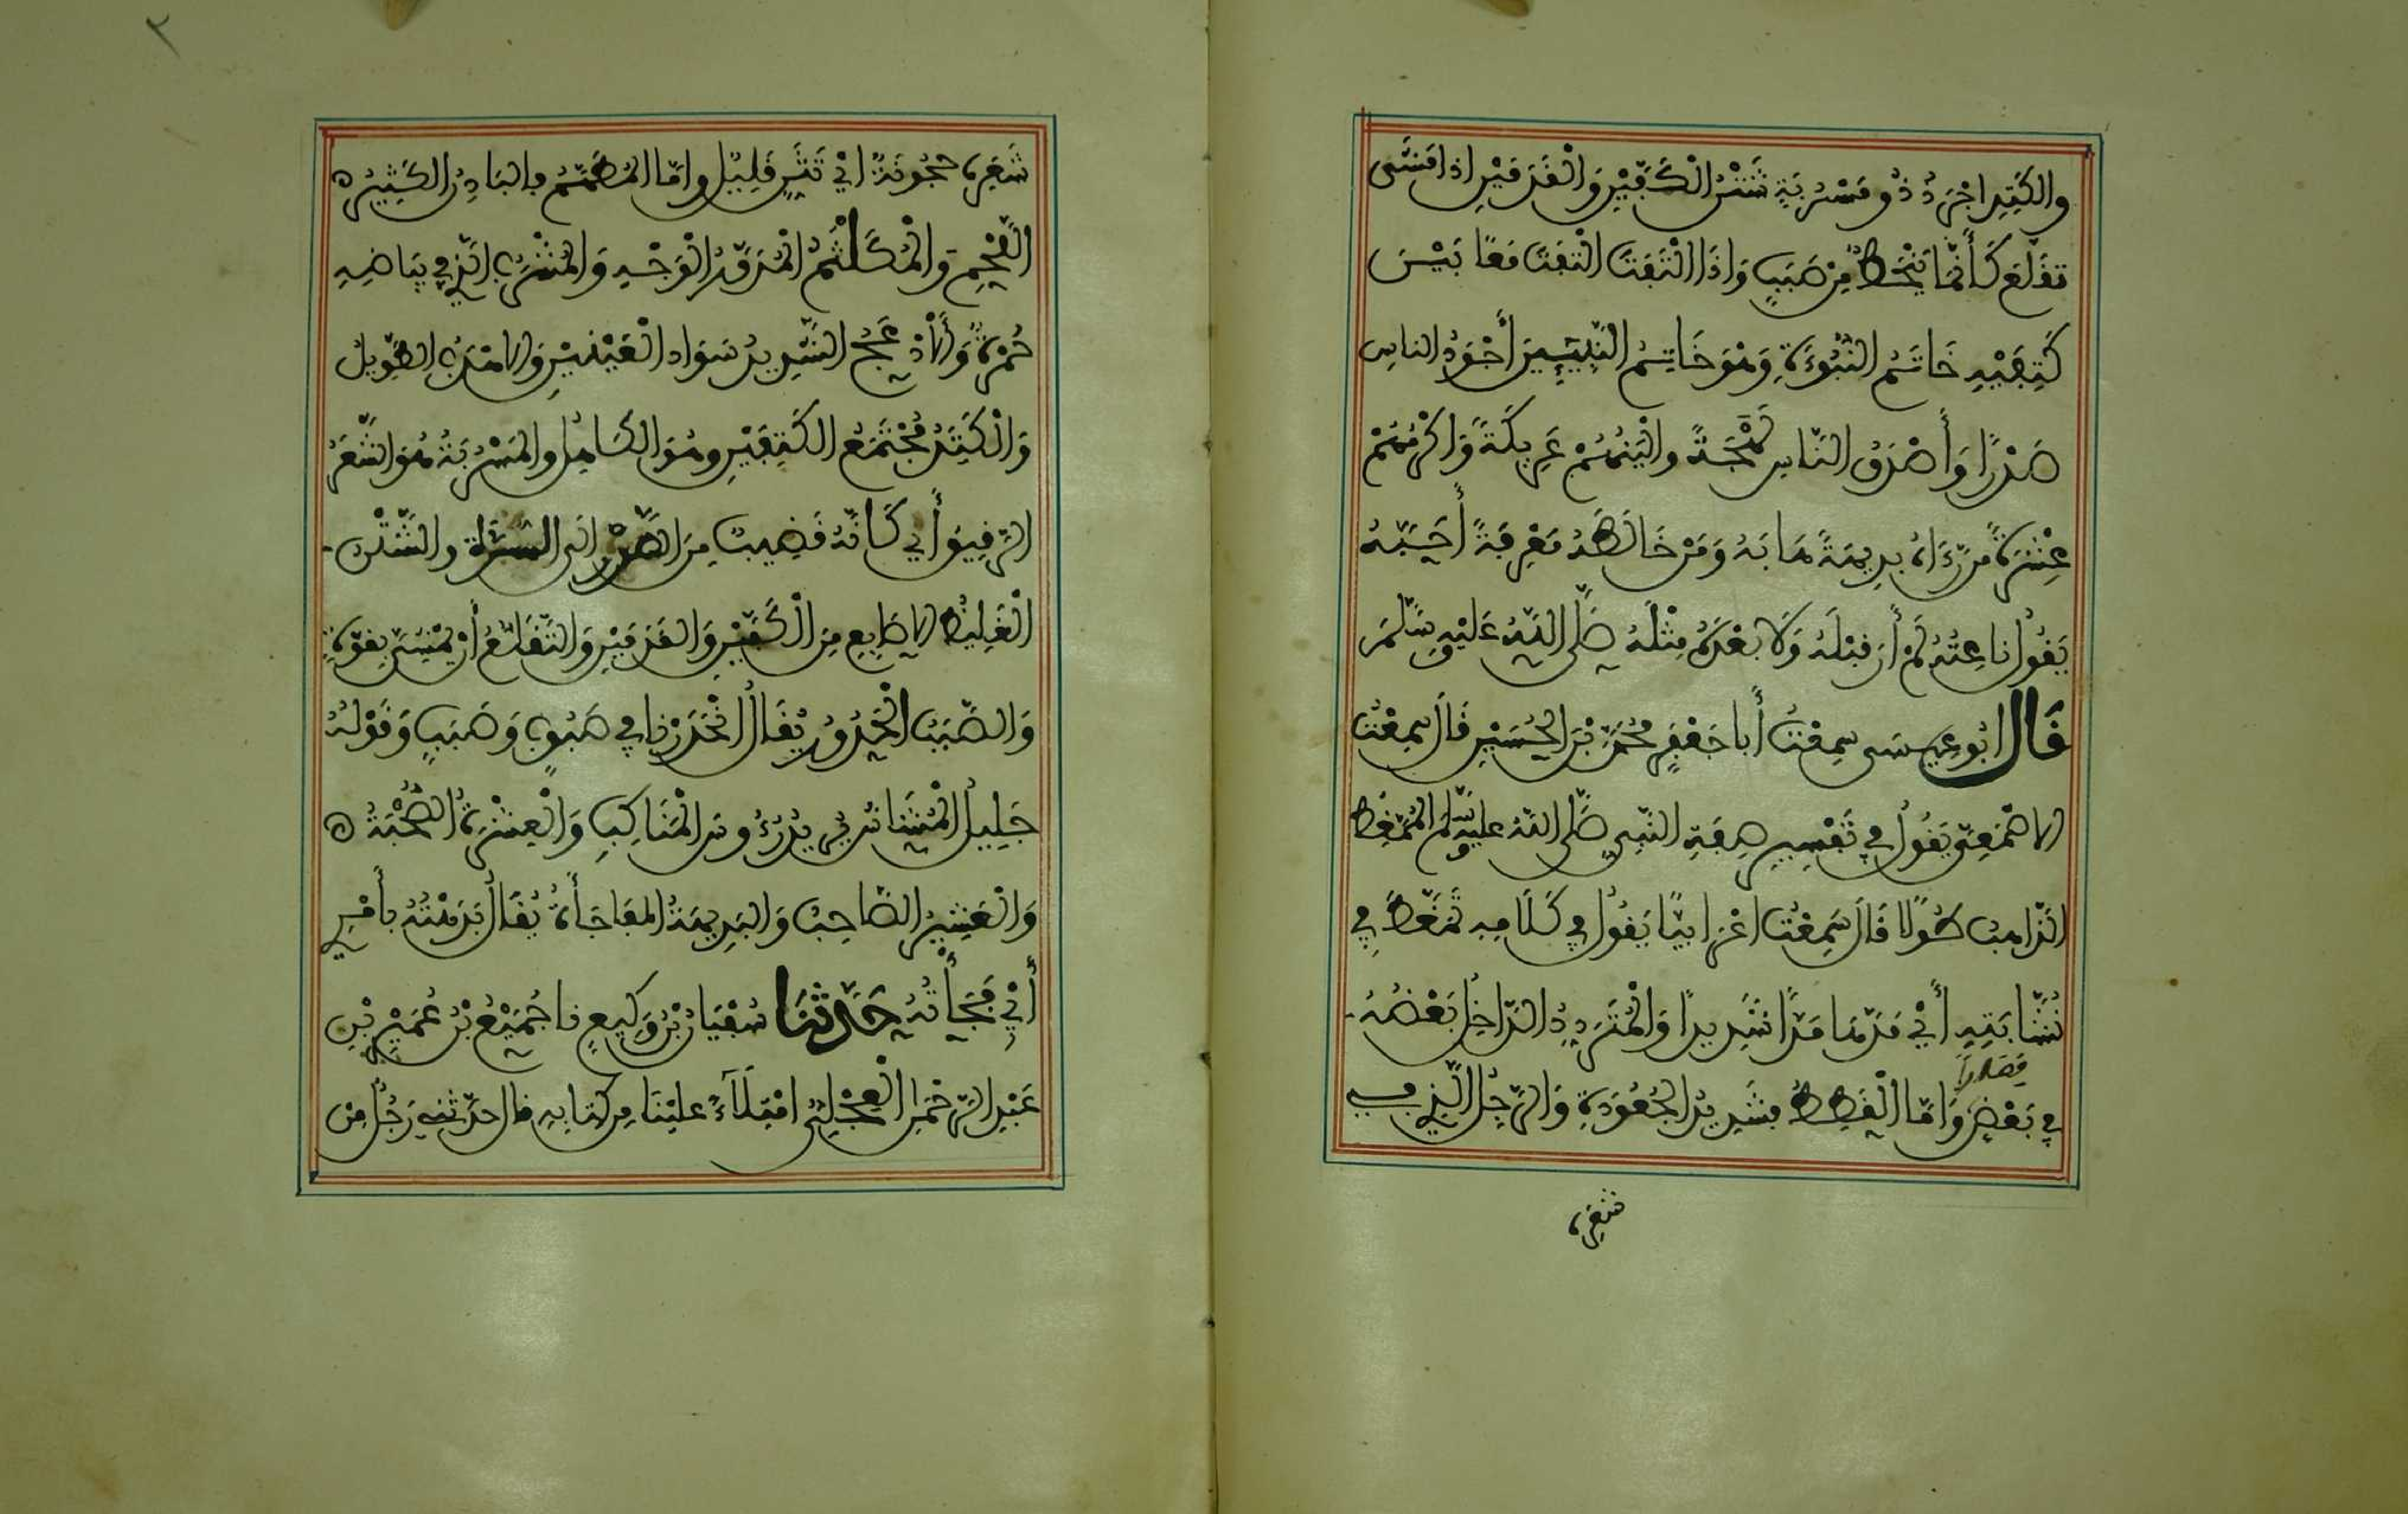 والكَتِدِ اجْرَدُ ذُو مَسْرُبَةٍ شَثْنُ الْكَفَّيْنِ وَالْقَدَمَيْنِ اذا مَشَى
تقَلَّعَ كَأَنَّمَا يَنْحَطُّ مِنْ صَبَبٍ وَاِذَا الْتَفَتَ الْتَفَتَ مَعًا بَيْنَ
كَتِفَيْهِ خَاتَمُ النُّبُوءَةِ وَهْوَ خَاتِمُ النَّبِيـِٕينَ أَجْوَدُ الناسِ
صَدْرًا وَأَصْدَقُ النَّاسِ لَهْجَةً والْيَنُهُمْ عَرِيكَةً وَاكْرَمُهُمْ
عِشْرَةً مَن رَءَاهُ بدِيهَةً هَابَهُ وَمَنْ خَالَطَهُ مَعْرِفَةً أَحَبَّهُ
يَقُولُ ناعِتُهُ لَمْ أَرَ قبْلَهُ وَلَا بعْدَهُ مِثْلَهُ صَلَّى اللَّهُ عَلَيْهِ وسَلَّمَ
قَالَ ابُو عيسَى سمِعْتُ أَبا جَعْفَرٍ مُحَمَّدَ بْنَ الحُسَيْنِ قَالَ سمِعْتُ
الاصْمَعِيَّ يَقُولُ في تَفْسِيرِ صِفَةِ النَّبِي صَلَّى اللهُ عليْهِ وسَلَّمَ المُمَّغِطُ
الذَّاهِبُ طُولًا قَالَ سَمِعْتُ اعْرابيًّا يَقُولُ في كَلَامِهِ تَمَغَّطَ فِي
نُشَّابَتِهِ أَيْ مَدَّهَا مَدًّا شَدِيدًا وَالْمُتَرَدِّدُ الدَّاخِلُ بَعْضُهُ
في بَعْضٍ قِصَرًا وَامَّا الْقَطَطُ فشَدِيدُ الْجُعُودَةِ وَالرَّجِلُ الَّذِي في
شعَرِهِ
شَعَرِهِ حُجُونَةٌ ايْ تَثَنٍّ قَلِيلٌ وامَّا المُطَهَّمُ فالبَادِنُ الكَثِيرُ ه
اللَّحْمِ وَالْمُكَلْثَمُ الْمُدَوَّرُ الْوَجْهِ وَالمُشْرَبُ الَّذِي في بيَاضِهِ
حُمْرَةٌ وَالادْعَجُ الشَّدِيدُ سَوَادِ الْعَيْنَيْنِ وَالاهْدَبُ الطَّوِيلُ
وَالْكَتَدُ مُجْتَمَعُ الكَتِفَيْنِ وهُوَ الكَاهِلُ والمَسْرُبَةُ هُوَ الشَّعَرُ
الرَّقِيقُ أَلذِي كَأَنَّهُ قَضِيبٌ مِنَ الصَّدْرِ الَى السُّرَّةِ والشَّثْنُ
الْغَلِيظُ الاصَابِعِ مِنَ الْكَفَّيْنِ وَالقَدَمَيْنِ وَالتَّقَلُّعُ أَنْ يَمْشِيَ بقوَّةٍ
وَالصَّبَبُ الْحَدُورُ يُقَالُ انْحَدَرْنا في صَبُوبٍ وَصَبَبٍ وَقَوْلُهُ
جَلِيلُ الْمُشَاشِ يُرِيدُ رُءُوسَ الْمَنَاكِبِ وَالْعِشْرَةُ الصُّحْبَةُ ه
وَالْعَشِيرُ الصَّاحِبُ وَالبَدِيهَةُ المفَاجَأَةُ يُقَالُ بَدَهْتُهُ بأَمْرٍ
أَيْ فَجَأْتُهُ حَدَّثَنَا سُفْيَانُ بْنُ وَكِيعٍ نا جُمَيْعُ بْنُ عُمَيْرِ بْنِ
عَبْدِ الرَّحْمَنِ الْعِجْلِيُّ امْلَاءً عليْنَا مِن كتابِهِ قال حدَّثنِي رَجُلٌ مِنْ